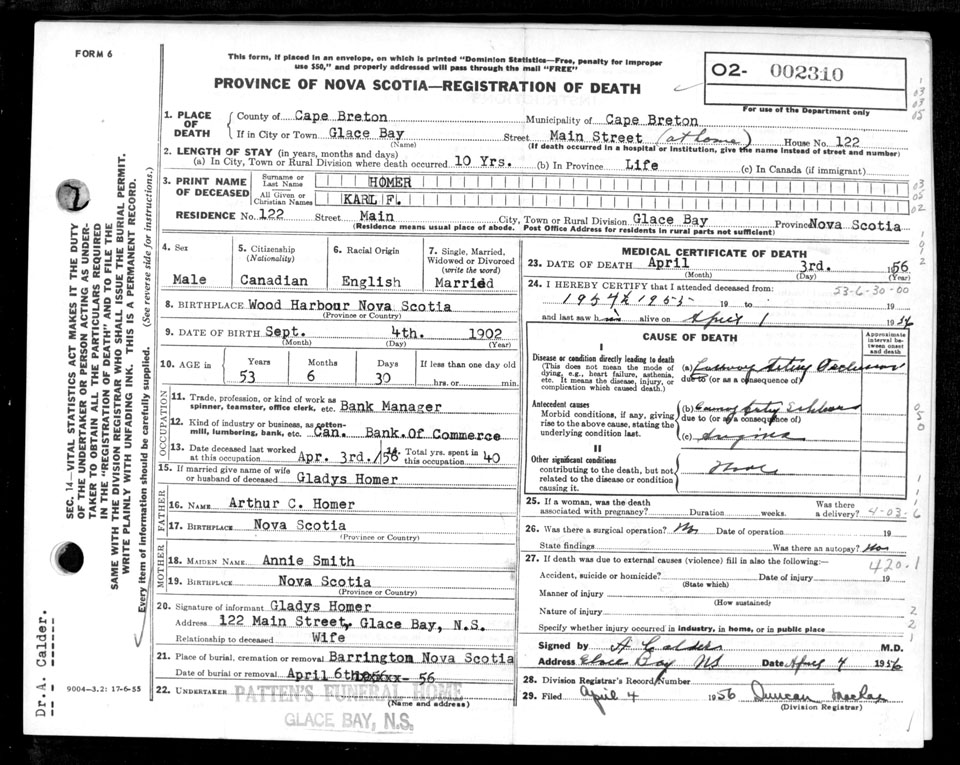 FORM 6
This form, if placed in an envelope, on which is printed "Dominion Statistics—Free, penalty for improper
use $50," and properly addressed will pass through the mail "FREE"
PROVINCE OF NOVA SCOTIA—REGISTRATION OF DEATH
O2- 002310
For use of the Department only
1. PLACE OF DEATH County of Cape Breton Municipality of Cape Breton
If in City or Town Glace Bay Street Main Street (at home) House No. 122
(Name) (If death occurred in a hospital or institution, give the name instead of street and number)
2. LENGTH OF STAY (in years, months and days)
(a) In City, Town or Rural Division where death occurred 10 Yrs. (b) In Province Life (c) In Canada (if immigrant)
3. PRINT NAME OF DECEASED
Surname or Last Name HOMER
All Given or Christian Names KARL F.
RESIDENCE No. 122 Street Main City, Town or Rural Division Glace Bay Province Nova Scotia
(Residence means usual place of abode. Post Office Address for residents in rural parts not sufficient)
4. Sex
Male
5. Citizenship
(Nationality)
Canadian
6. Racial Origin
English
7. Single, Married,
Widowed or Divorced
(write the word)
Married
8. BIRTHPLACE Wood Harbour Nova Scotia
(Province or Country)
9. DATE OF BIRTH Sept. 4th. 1902
(Month) (Day) (Year)
10. AGE in Years Months Days If less than one day old
53 6 30 hrs. or min.
OCCUPATION
11. Trade, profession, or kind of work as
spinner, teamster, office clerk, etc. Bank Manager
12. Kind of industry or business, as cotton-
mill, lumbering, bank, etc. Can. Bank.Of Commerce
13. Date deceased last worked
at this occupation Apr. 3rd./56
14. Total yrs. spent in
this occupation 40
15. If married give name of wife
or husband of deceased Gladys Homer
FATHER
16. NAME Arthur C. Homer
17. BIRTHPLACE Nova Scotia
(Province or Country)
MOTHER
18. MAIDEN NAME Annie Smith
19. BIRTHPLACE Nova Scotia
(Province or Country)
20. Signature of informant Gladys Homer
Address 122 Main Street, Glace Bay, N.S.
Relationship to deceased Wife
21. Place of burial, cremation or removal Barrington Nova Scotia
Date of burial or removal April 6th 56
22. UNDERTAKER PATTEN'S FUNERAL HOME
(Name and address)
GLACE BAY, N.S.
MEDICAL CERTIFICATE OF DEATH
23. DATE OF DEATH April 3rd. 1956
(Month) (Day) (Year)
24. I HEREBY CERTIFY that I attended deceased from:
53-6-30-00
19 to 19
and last saw h alive on April 1 1956
CAUSE OF DEATH
Approximate interval between onset and death
I
Disease or condition directly leading to death
(This does not mean the mode of
dying, e.g., heart failure, asthenia,
etc. It means the disease, injury, or
complication which caused death.)
(a) Artery Occlusion
due to (or as a consequence of)
Antecedent causes
Morbid conditions, if any, giving
rise to the above cause, stating the
underlying condition last.
(b)
due to (or as a consequence of)
(c) Angina
II
Other significant conditions
contributing to the death, but not
related to the disease or condition
causing it.
25. If a woman, was the death
associated with pregnancy? Duration weeks. Was there a delivery?
4-03-6
26. Was there a surgical operation? No Date of operation 19
State findings Was there an autopsy?
27. If death was due to external causes (violence) fill in also the following:—
420.1
Accident, suicide or homicide? Date of injury 19
(State which)
Manner of injury
(How sustained)
Nature of injury
Specify whether injury occurred in industry, in home, or in public place
Signed by A Calder M.D.
Address Glace Bay NS Date April 4 1956
28. Division Registrar's Record Number
29. Filed April 4 1956 Duncan
(Division Registrar)
SEC. 14—VITAL STATISTICS ACT MAKES IT THE DUTY
OF THE UNDERTAKER OR PERSON ACTING AS UNDER-
TAKER TO OBTAIN ALL THE PARTICULARS REQUIRED
IN THE "REGISTRATION OF DEATH" AND TO FILE THE
SAME WITH THE DIVISION REGISTRAR WHO SHALL ISSUE THE BURIAL PERMIT.
WRITE PLAINLY WITH UNFADING INK. THIS IS A PERMANENT RECORD.
Every item of Information should be carefully supplied. (See reverse side for instructions.)
Dr.A. Calder.
9004—3.2: 17-6-55